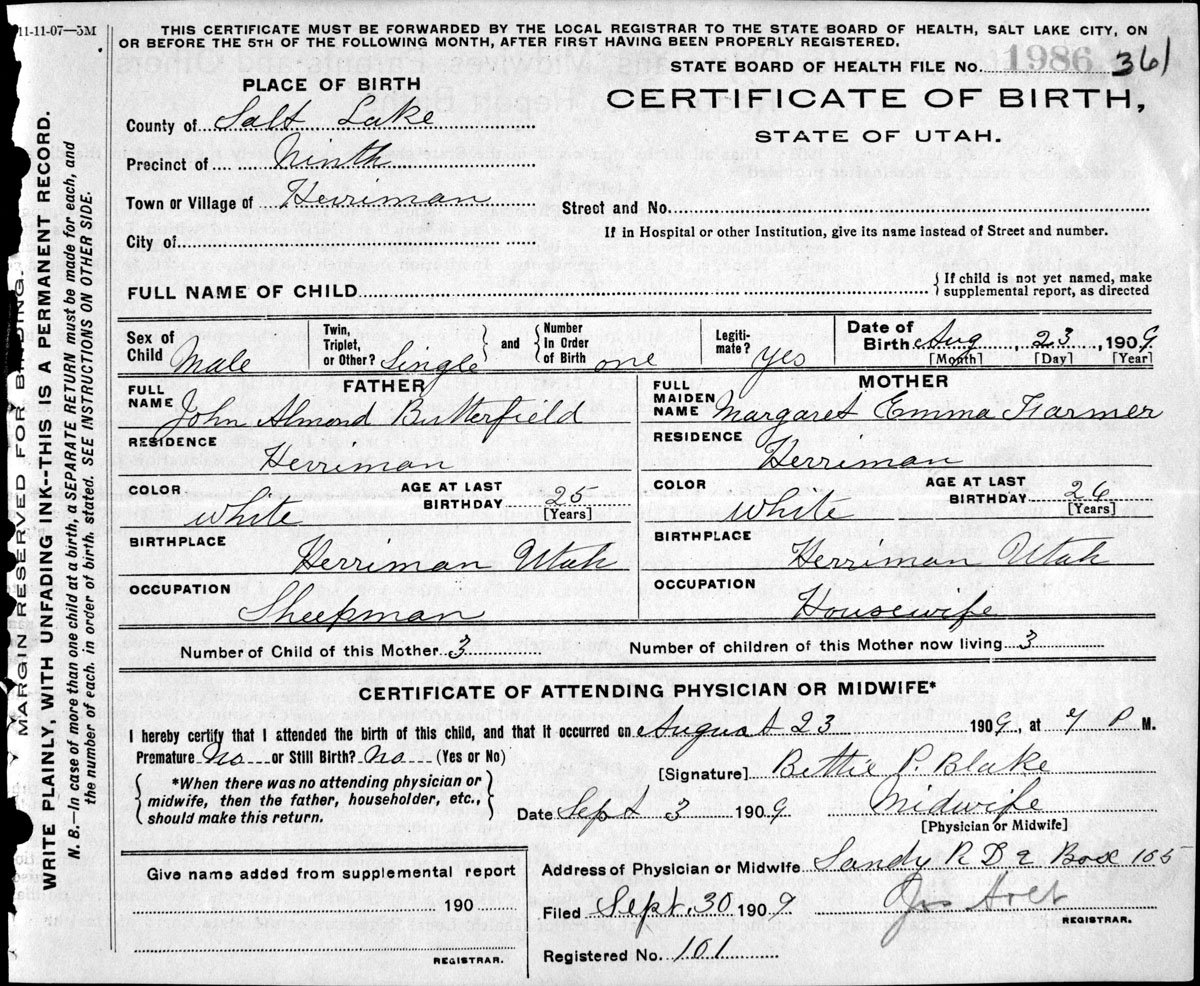 11-11-07—5M
THIS CERTIFICATE MUST BE FORWARDED BY THE LOCAL REGISTRAR TO THE STATE BOARD OF HEALTH, SALT LAKE CITY, ON
OR BEFORE THE 5TH OF THE FOLLOWING MONTH, AFTER FIRST HAVING BEEN PROPERLY REGISTERED.
STATE BOARD OF HEALTH FILE No. 1986 361
PLACE OF BIRTH
CERTIFICATE OF BIRTH,
STATE OF UTAH.
County of Salt Lake
Precinct of Ninth
Town or Village of Herriman
Street and No.
If in Hospital or other Institution, give its name instead of Street and number.
City of
FULL NAME OF CHILD
{ If child is not yet named, make
supplemental report, as directed
Sex of
Child Male
Twin,
Triplet,
or Other? Single
and
Number
In Order
of Birth one
Legiti-
mate? yes
Date of
Birth Aug, 23, 1909
[Month] [Day] [Year]
FATHER
FULL
NAME John Almond Butterfield
MOTHER
FULL
MAIDEN
NAME Margaret Emma Farmer
RESIDENCE
Herriman
RESIDENCE
Herriman
COLOR
White
AGE AT LAST
BIRTHDAY 25
[Years]
COLOR
White
AGE AT LAST
BIRTHDAY 26
[Years]
BIRTHPLACE
Herriman Utah
BIRTHPLACE
Herriman Utah
OCCUPATION
Sheepman
OCCUPATION
Housewife
Number of Child of this Mother 3
Number of children of this Mother now living 3
CERTIFICATE OF ATTENDING PHYSICIAN OR MIDWIFE*
I hereby certify that I attended the birth of this child, and that it occurred on August 23 1909, at 7 P M.
Premature No or Still Birth? No (Yes or No)
*When there was no attending physician or
midwife, then the father, householder, etc.,
should make this return.
[Signature] Bettie P. Blake
Date Sept 3 1909 Midwife
[Physician or Midwife]
Give name added from supplemental report
190
REGISTRAR.
Address of Physician or Midwife Sandy R D 2 Box 155
Filed Sept. 30 1909
REGISTRAR.
Registered No. 101
MARGIN RESERVED FOR BINDING.
WRITE PLAINLY, WITH UNFADING INK--THIS IS A PERMANENT RECORD.
N. B.—In case of more than one child at a birth, a SEPARATE RETURN must be made for each, and
the number of each, in order of birth, stated. SEE INSTRUCTIONS ON OTHER SIDE.